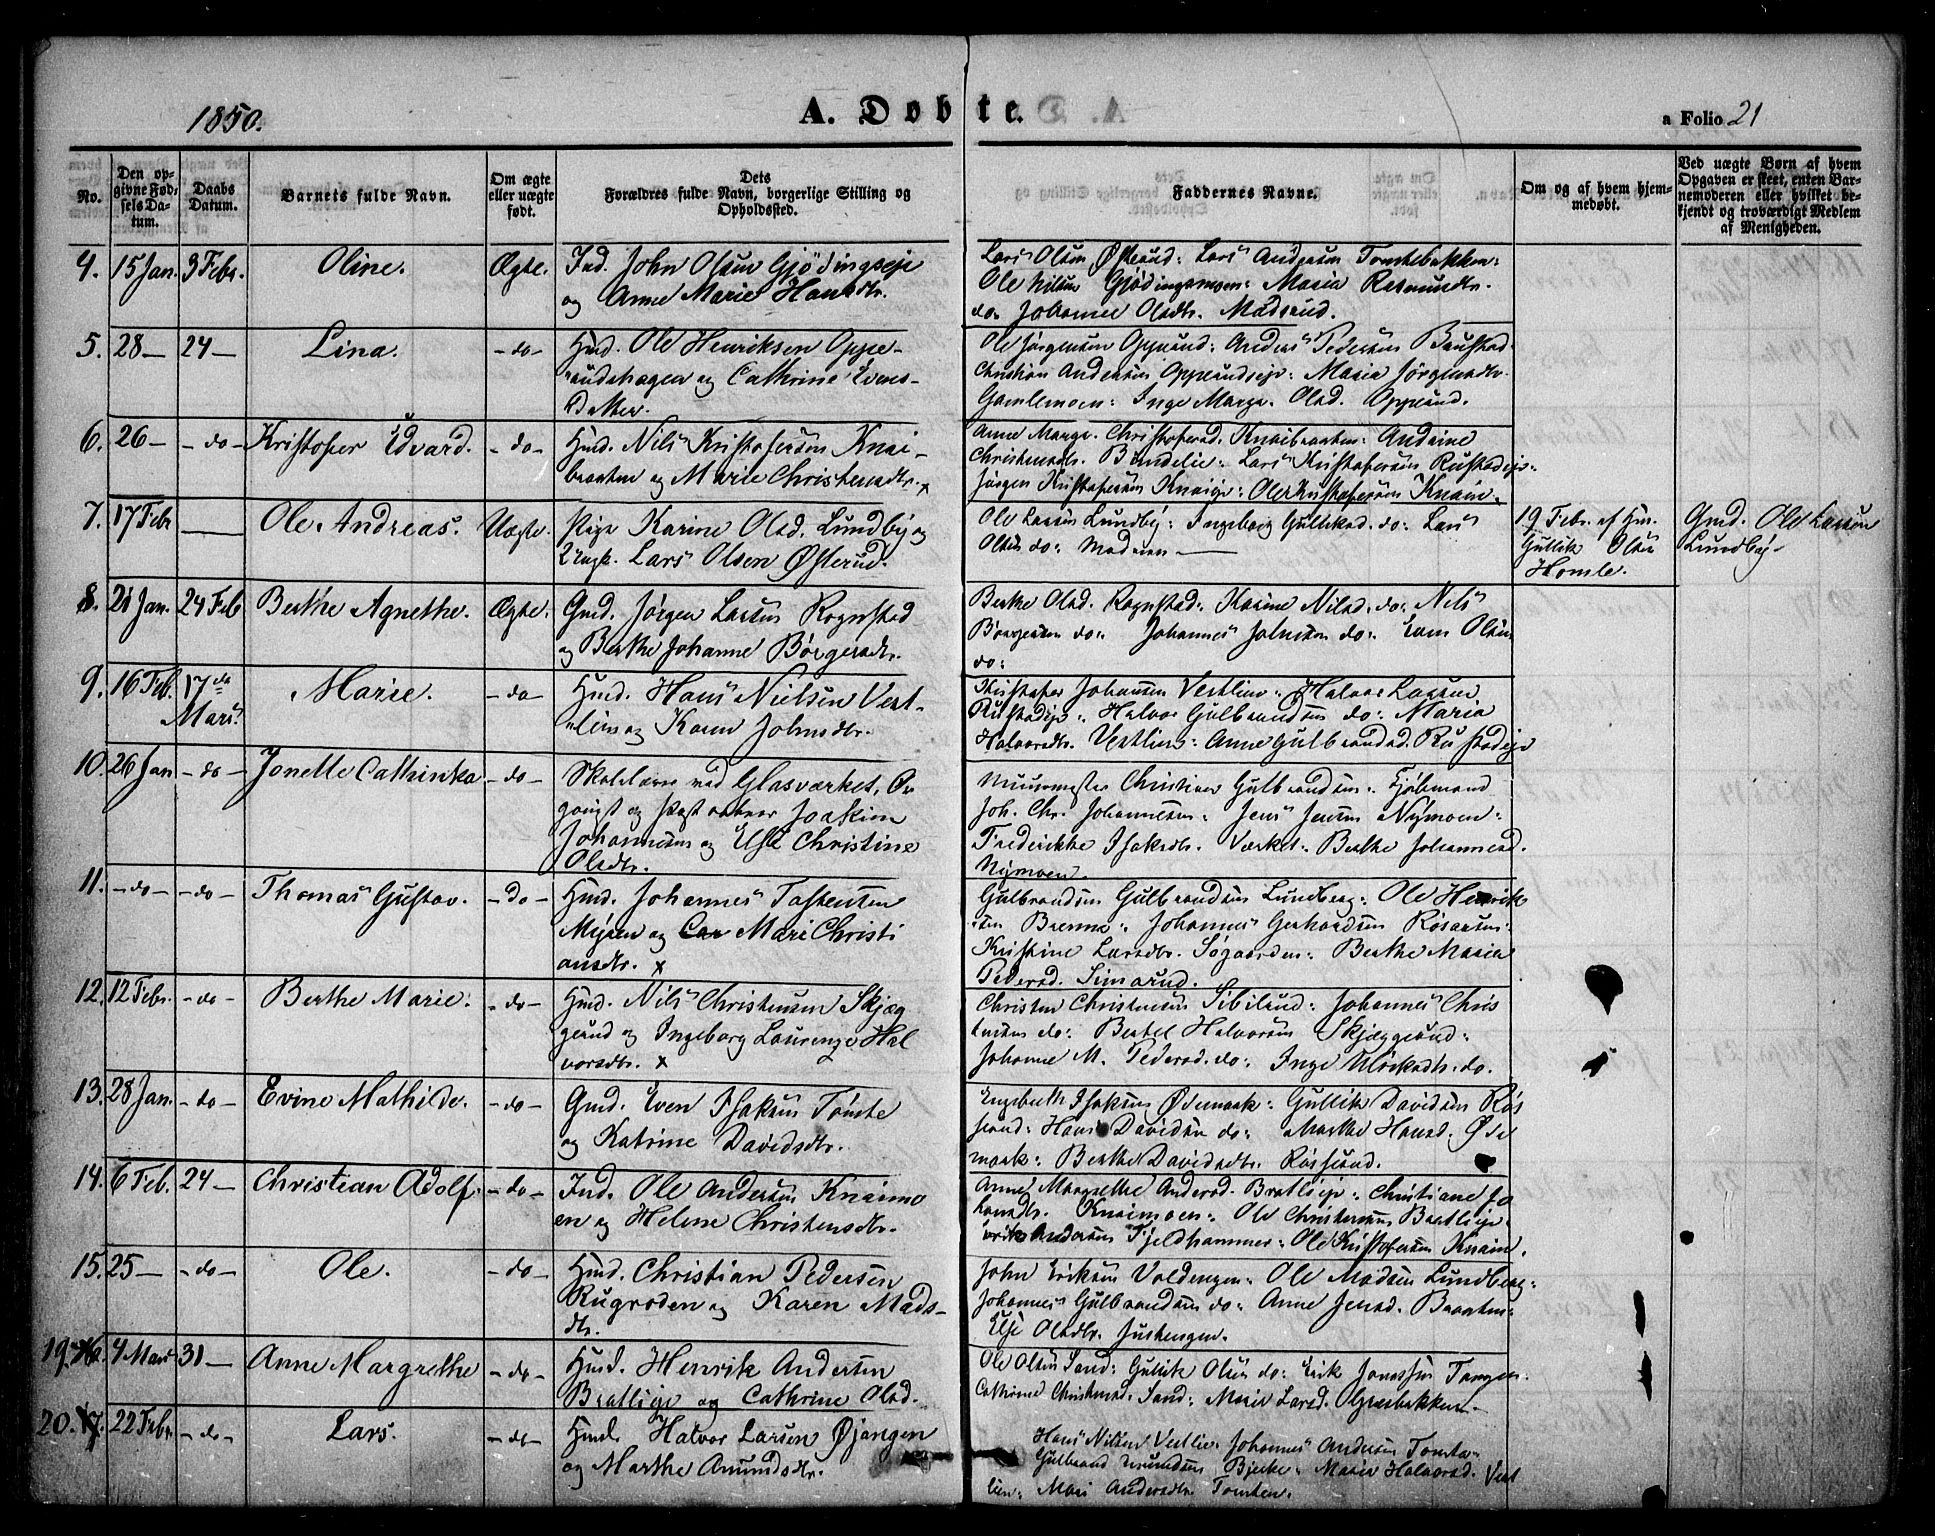 1850.
A. Døbte.
a Folio 21
No.
Den op-
givne Fød-
sels Da-
tum.
Daabs
Datum.
Barnets fulde Navn.
Om ægte
eller uægte
født.
Dets
Forældres fulde Navn, borgerlige Stilling og
Opholdssted.
Faddernes Navne.
Om og af hvem hjem-
medøbt.
Ved uægte Børn af hvem
Opgaven er skeet, enten Bar-
nemoderen eller hvilket be-
kjendt og troværdigt Medlem
af Menigheden.
4. 15 Jan. 3 Febr. Oline. Ægte. Ind. John Olsen Gjödingseje
og Anne Marie Hansdtr.
Lars Olsen Østerud: Lars Andersen Tomtebakken:
Ole Nilsen Gjödingsmoen: Maria Rasmusdtr.
do. Johanne Olsdtr. Madsrud.
5. 28 — 24 — Lina. - do - Husd. Ole Henriksen Oppe-
rudshagen og Cathrine Evens-
Datter.
Ole Jørgensen Opperud: Anders Pedersen Baustad
Christian Andersen Opperudseje: Maria Jörgensdtr.
Gamlemoen: Inge Margr. Olsd. Opperud.
6. 26 — - do - Kristofer Edvard. - do - Husd. Nils Kristofersen Knai-
braaten og Marie Christensdtr. x
Anne Margr. Christofersd. Knaibraaten: Andrine
Christensdtr. Bundelie: Lars Kristofersen Rustadeje:
Jørgen Kristofersen Knaieje: Ole Kristofersen Knain.
7. 17 Febr — Ole Andreas. Uægte. Pige Karine Olsd. Lundby og
Ungk. Lars Olsen Østerud.
Ole Larsen Lundby: Ingeborg Gulliksd. do: Lars
Olsen do: Moderen —
19 Febr. af Hus.
Gullik Olsen
Homle.
Gmd. Ole Larsen
Lundby-
8. 21 Jan. 24 Feb Berthe Agnethe. Ægte. Gmd. Jörgen Larsen Rognstad
og Berthe Johanne Börgersdtr.
Berthe Olsd. Rognstad: Karine Nilsd. do: Nils
Börgersen do: Johannes Johnsen do: Even Olsen
do:
9. 16 Feb. 17de
Mars. Marie. - do - Husd. Hans Nielsen Vest-
lien og Karen Johnsdtr.
Kristofer Johansen Vestlien: Halvor Larsen
Rustadeje: Halvor Gulbrandsen do: Maria
Halvorsdtr. Vestlien: Anne Gulbrandsd. Rustadeje
10. 26 Jan - do - Jonette Cathinka - do - Skolelærer ved Glasværket, Or-
ganist og Postaabner Joakim
Johannesen og Else Christine
Olsdtr.
Muurmester Christian Gulbrandsen: Kjøbmand
Joh. Chr. Johannesen: Jens Jensen Nymoen:
Frederikke Isaksdtr. Værket: Berthe Johannesd.
Nymoen.
11. - do - - do - Thomas Gustav. - do - Husd. Johannes Torstensen
Myren og Mari Christi
ansdtr. x
Gulbrandsen Gulbrandsen Lundberg: Ole Henrik
sen Brenna: Johannes Gerhardsen Rösaasen:
Kristine Larsdtr. Søgaarden: Berthe Maria
Pedersd. Simarud.
12. 12 Febr. - do - Berthe Marie. - do - Husd. Nils Christensen Skjæg
gerud og Ingeborg Laurense Hal
vorsdtr. x
Christen Christensen Sibilrud: Johannes Chris
tensen do: Bertel Halvorsen Skjæggerud:
Johanne M. Pedersd. do: Inge Ulriksdtr. do.
13. 28 Jan. - do - Evine Mathilde. - do - Gmd. Even Isaksen Tomte
og Katrine Davidsdtr.
Engebreth Isaksen Ødemark: Gullik Davidsen Rös
serud: Hans Davidsen do: Marthe Hansd. Øde
mark: Berthe Davidsdtr. Rösserud.
14. 6 Feb. 24 — Christian Adolf. - do - Ind. Ole Andersen Knaimo
en og Helene Christensdtr.
Anne Margrethe Andersd. Bratlieje: Christiane Jo
hansdtr. Knaimoen: Ole Christensen Bratlieje
Erik Andersen Fjeldhammer: Ole Kristofersen Knain.
15. 25 — - do - Ole. - do - Husd. Christian Pedersen
Rugroden og Karen Mads-
dtr.
John Eriksen Voldengen: Ole Madsen Lundberg:
Johannes Gulbrandsen do: Anne Jensd. Braaten:
Else Olsdtr. Justengen.
19. 4 Mars 31 — Anne Margrethe - do - Husd. Henrik Andersen
Bratlieje og Cathrine Olsd.
Ole Olsen Sand: Gullik Olsen do: Erik Jonassen Tangen:
Cathrine Christensd. Sand: Marie Larsd. Græsbakken.
20. 22 Febr. - do - Lars. - do - Husd. Halvor Larsen Øjangen
og Marthe Amundsdtr.
Hans Nilsen Vestlie: Johannes Andersen Tomta:
Gulbrand Amundsen Bjerke: Maria Halvorsd. Vest
lien: Mari Andersdtr. Tomten.